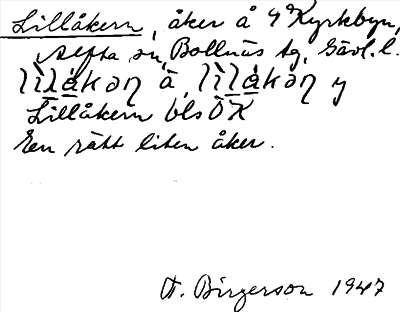 Lillåkern, åker å 4ª Kyrkbyn,
Alfta sn, Bollnäs tg, Gävl. l.
lìlákəɳ ä, lìlákəɳ y
Lillåkern bls ÖK
En rätt liten åker.
A. Birgerson 1947